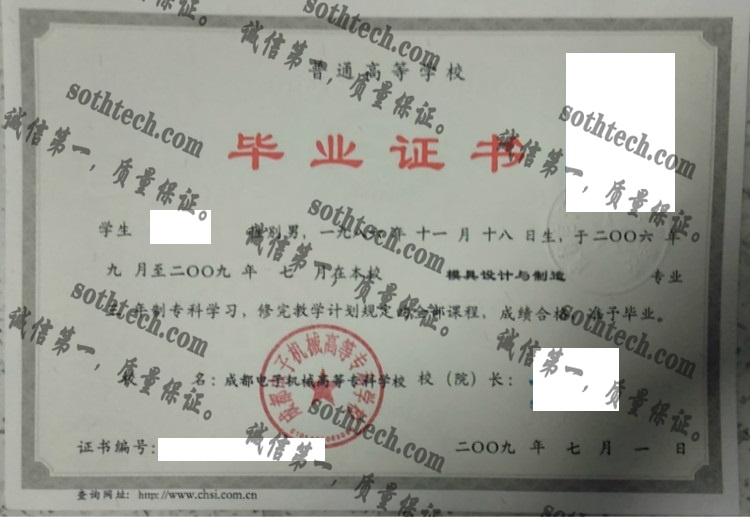 普通高等学校
毕业证书
学生 性别男，一九八六年 十一月 十八日生，于二〇〇六 年
九 月至二〇〇九 年 七 月在本校 模具设计与制造 专业
年制专科学习，修完教学计划规定的全部课程，成绩合格，准予毕业。
校 名：成都电子机械高等专科学校 校（院）长：
证书编号：
二〇〇九 年 七 月 一 日
查询网址：http://www.chsi.com.cn
成都电子机械高等专科学校
sothtech.com
诚信第一，质量保证。
sothtech.com
诚信第一，质量保证。
sothtech.com
诚信第一，质量保证。
sothtech.com
诚信第一，质量保证。
sothtech.com
诚信第一，质量保证。
sothtech.com
诚信第一，质量保证。
sothtech.com
诚信第一，质量保证。